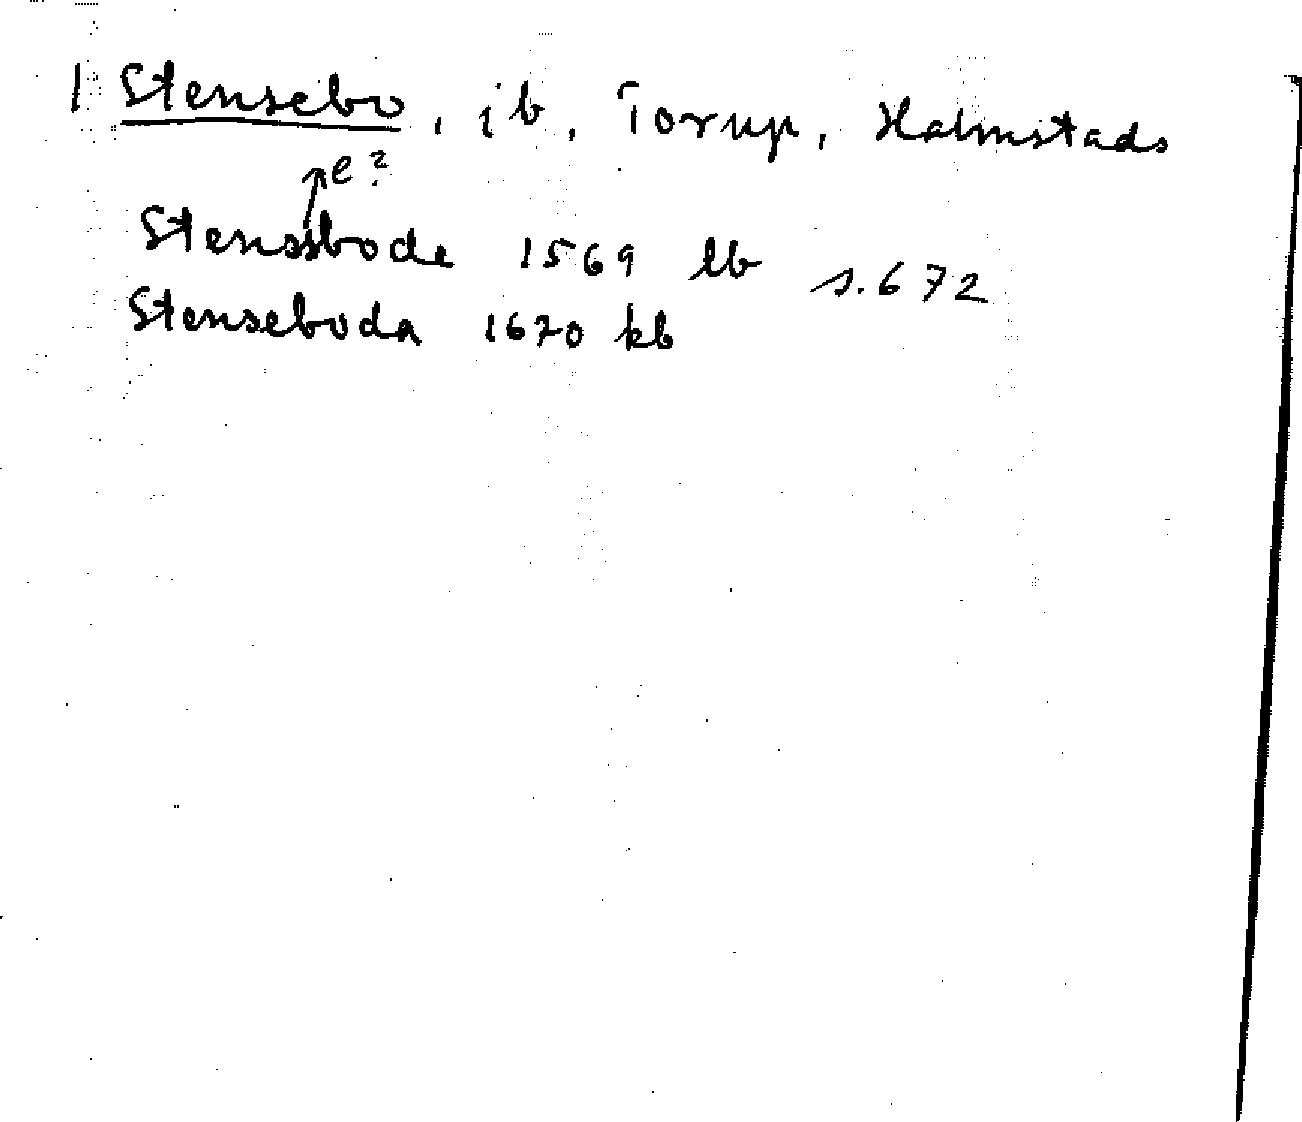 1 Stensebo, ib, Torup, Halmstads
e?
Stenssbode 1569 lb s. 672
Stenseboda 1670 kb